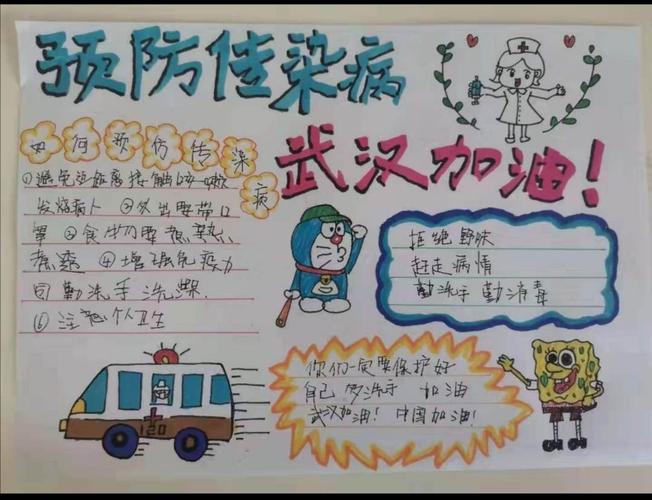 预防佳染病
武汉加油!
如何预仿传染病
①避免近距离接触咳嗽
发烧病人 ②外出要带口
罩 ③食物要煮熟
煮透 ④增强免疫力
⑤勤洗手 洗澡
⑥注意个人卫生
拒绝野味
赶走病情
勤洗手 勤消毒
你们一定要保护好
自己 多洗手 加油
武汉加油! 中国加油!
120